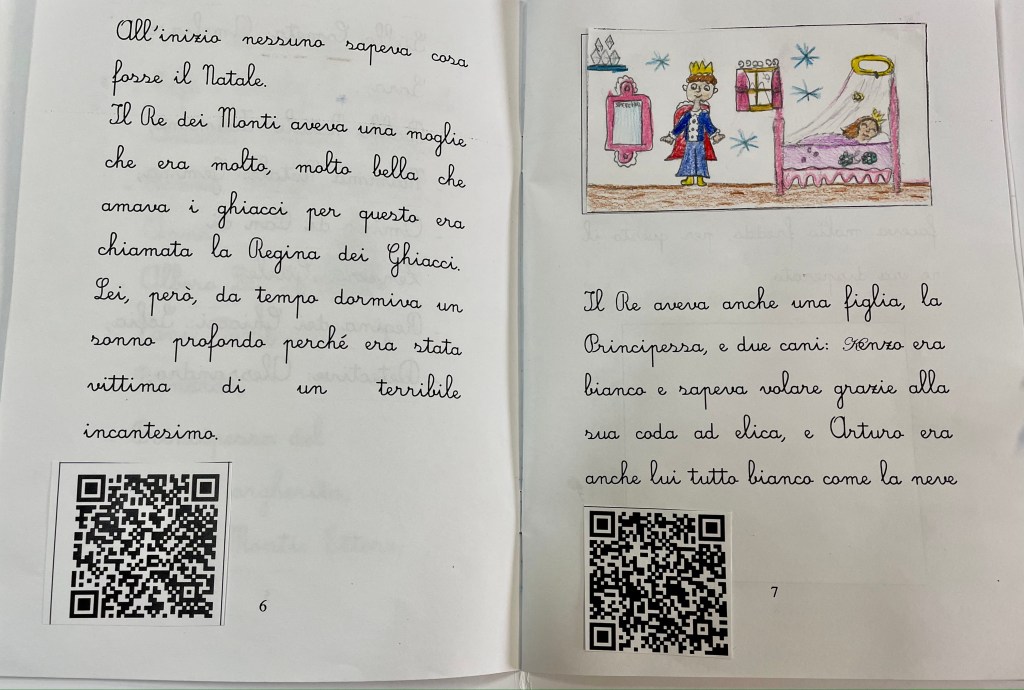 All'inizio nessuno sapeva cosa
fosse il Natale.
Il Re dei Monti aveva una moglie
che era molto, molto bella che
amava i ghiacci per questo era
chiamata la Regina dei Ghiacci.
Lei, però, da tempo dormiva un
sonno profondo perché era stata
vittima di un terribile
incantesimo.
6
Il Re aveva anche una figlia, la
Principessa, e due cani: Kenzo era
bianco e sapeva volare grazie alla
sua coda ad elica, e Arturo era
anche lui tutto bianco come la neve
7